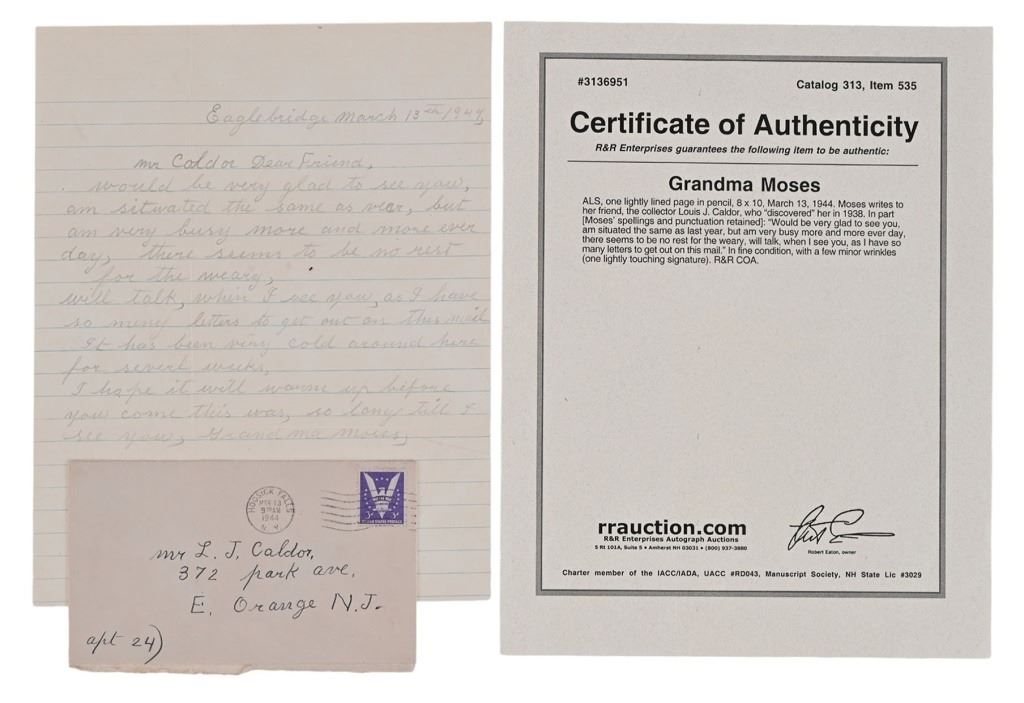 Eaglebridge March 13th 1944,
mr Caldor Dear Friend,
would be very glad to see you,
am situated the same as year, but
am very busy more and more ever
day, there seems to be no rest
for the weary,
will talk, when I see you, as I have
so meny letters to get out on this mail
It has been very cold around here
for severl weeks,
I hope it will warme up before
you come this way, so long till I
see you, Grandma Moses,
HOOSICK FALLS
MAR 13
9 AM
1944
N.Y.
3¢ 3¢
UNITED STATES POSTAGE
mr L. J. Caldor,
372 park ave,
E. Orange N.J.
apt 24)
#3136951
Catalog 313, Item 535
Certificate of Authenticity
R&R Enterprises guarantees the following item to be authentic:
Grandma Moses
ALS, one lightly lined page in pencil, 8 x 10, March 13, 1944. Moses writes to
her friend, the collector Louis J. Caldor, who “discovered” her in 1938. In part
[Moses’ spellings and punctuation retained]: “Would be very glad to see you,
am situated the same as last year, but am very busy more and more ever day,
there seems to be no rest for the weary, will talk, when I see you, as I have so
many letters to get out on this mail.” In fine condition, with a few minor wrinkles
(one lightly touching signature). R&R COA.
rrauction.com
R&R Enterprises Autograph Auctions
5 Rt 101A, Suite 5 • Amherst NH 03031 • (800) 937-3880
Robert Eaton, owner
Charter member of the IACC/IADA, UACC #RD043, Manuscript Society, NH State Lic #3029